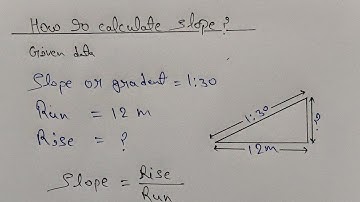 How to calculate slope?
Given data
Slope or gradent = 1:30
Run = 12 m
Rise = ?
Slope = Rise
Run
1:30
?
12m